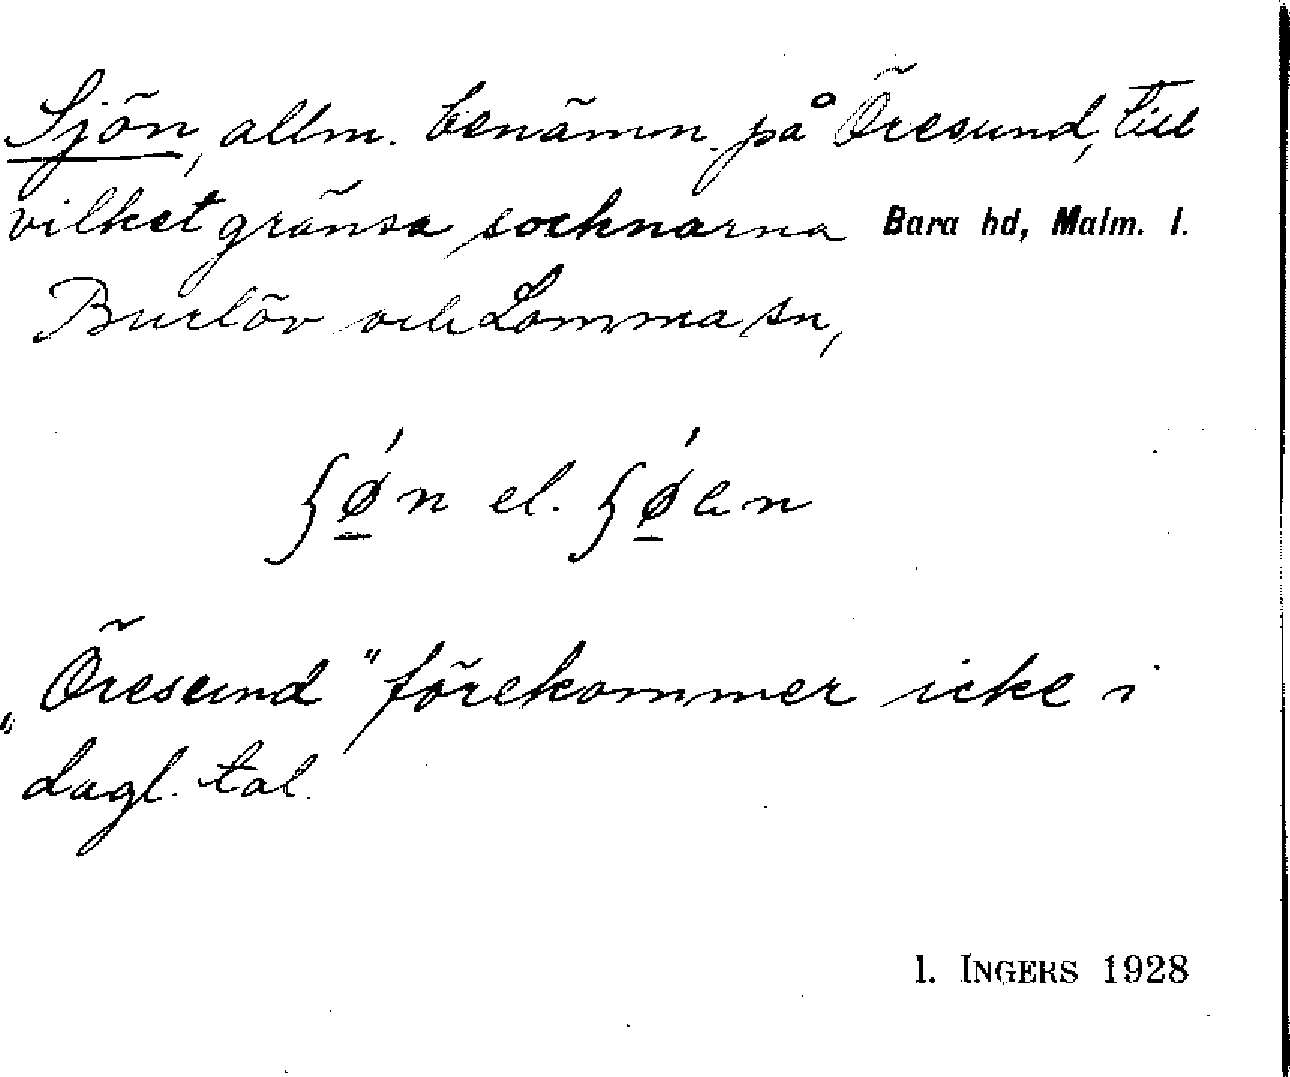 Sjön, allm. benämn. på Öresund, till
vilket gränsa socknarna Bara hd, Malm. l.
Burlöv och Lomma sn,
ʃǿn el. ʃǿen
„Öresund" förekommer icke i
dagl. tal.
I. INGERS 1928